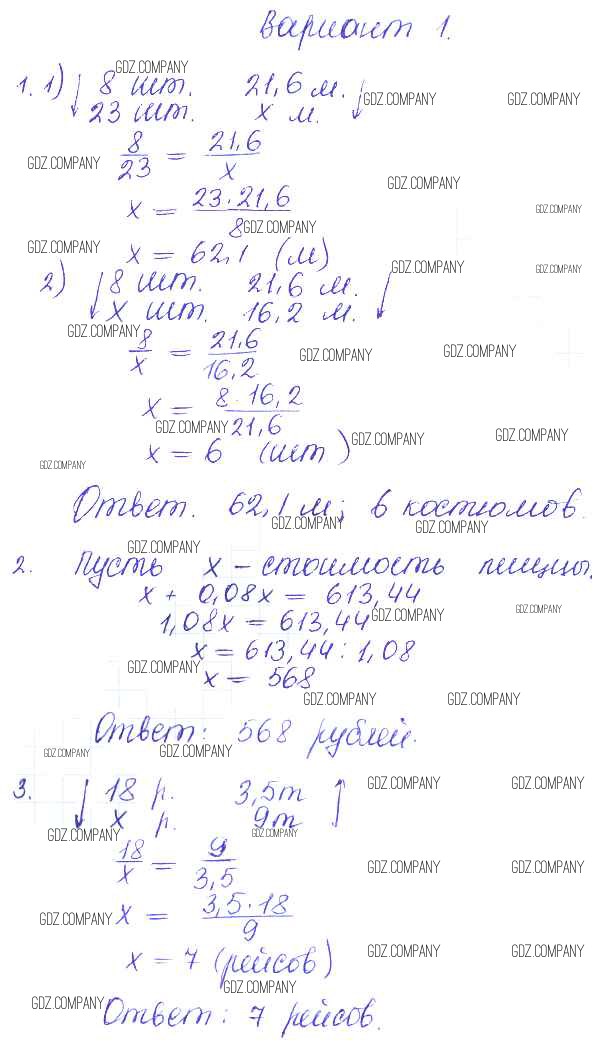 Вариант 1.
GDZ.COMPANY
1. 1) ↓ 8 шт. 21,6 м. ↓ GDZ.COMPANY GDZ.COMPANY
23 шт. x м.
GDZ.COMPANY 8/23 = 21,6/x
GDZ.COMPANY
x = 23·21,6/8 GDZ.COMPANY
GDZ.COMPANY
GDZ.COMPANY x = 62,1 (м)
GDZ.COMPANY GDZ.COMPANY
2) ↓ 8 шт. 21,6 м. ↓
x шт. 16,2 м.
GDZ.COMPANY
8/x = 21,6/16,2 GDZ.COMPANY GDZ.COMPANY
x = 8·16,2/21,6
GDZ.COMPANY GDZ.COMPANY GDZ.COMPANY
x = 6 (шт)
GDZ.COMPANY
Ответ. 62,1 м; 6 костюмов.
GDZ.COMPANY GDZ.COMPANY
GDZ.COMPANY
2. Пусть x – стоимость пиццы.
x + 0,08x = 613,44
1,08x = 613,44 GDZ.COMPANY GDZ.COMPANY
x = 613,44 : 1,08
GDZ.COMPANY
x = 568
GDZ.COMPANY GDZ.COMPANY
Ответ: 568 рублей.
GDZ.COMPANY GDZ.COMPANY
3. ↓ 18 р. 3,5т ↑ GDZ.COMPANY GDZ.COMPANY
x р. 9т
GDZ.COMPANY GDZ.COMPANY
18/x = 9/3,5 GDZ.COMPANY GDZ.COMPANY
GDZ.COMPANY x = 3,5·18/9
x = 7 (рейсов) GDZ.COMPANY GDZ.COMPANY
GDZ.COMPANY
GDZ.COMPANY Ответ: 7 рейсов.